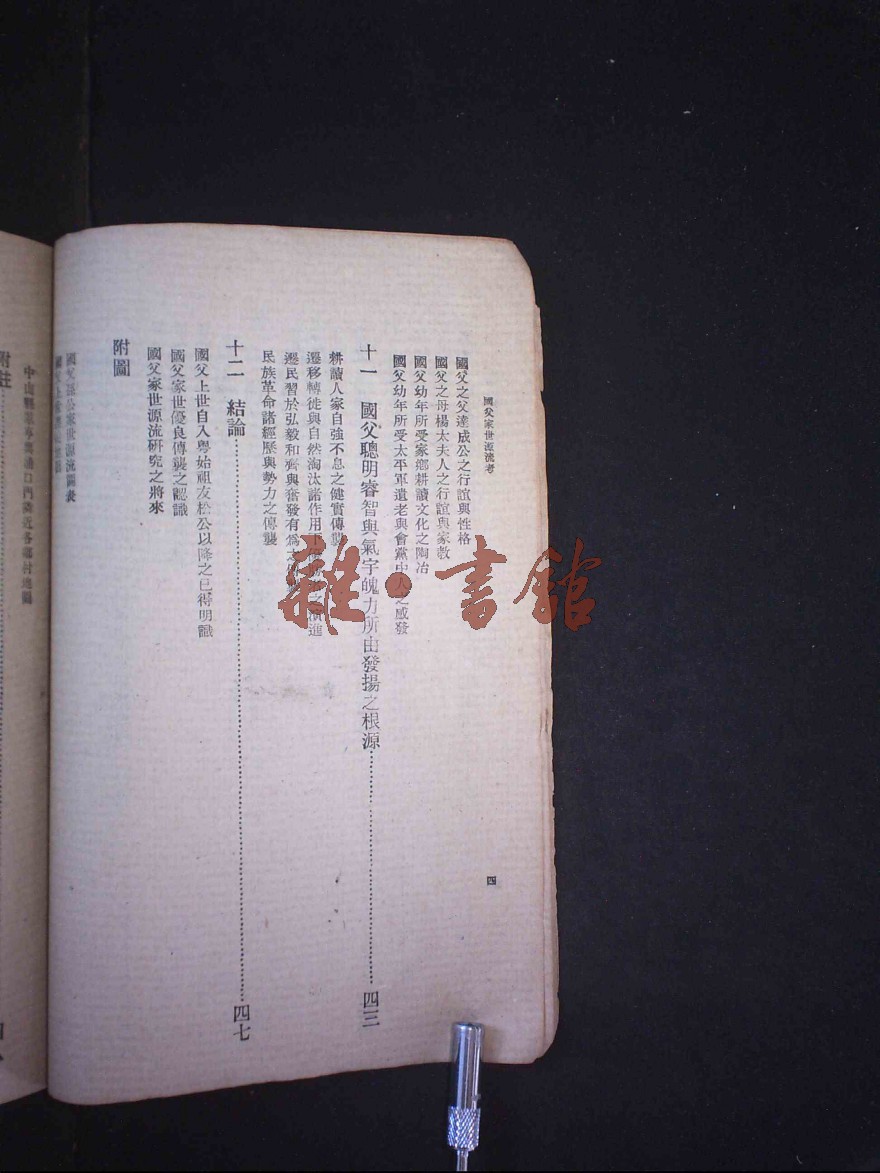 國父家世源流考
四
國父之父達成公之行誼與性格
國父之母楊太夫人之行誼與家教
國父幼年所受家鄉耕讀文化之陶冶
國父幼年所受太平軍遺老與會黨中人之感發
十一 國父聰明睿智與氣宇魄力所由發揚之根源 四三
耕讀人家自強不息之健實傳襲
遷移轉徙與自然淘汰諸作用下 演進
遷民習於弘毅和齊與奮發有為之
民族革命諸經歷與勢力之傳襲
十二 結論 四七
國父上世自入粵始祖友松公以降之已得明識
國父家世優良傳襲之認識
國父家世源流研究之將來
附圖
國父孫公家世源流圖表
附註
雜·書館